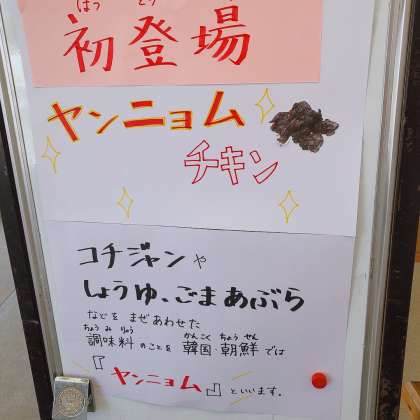 はつ とう
初登場
ヤンニョム
チキン
コチジャンや
しょうゆ、ごまあぶら
などを まぜあわせた
ちょう み りょう かんこく ちょう せん
調味料のことを 韓国・朝鮮では
『ヤンニョム』といいます。